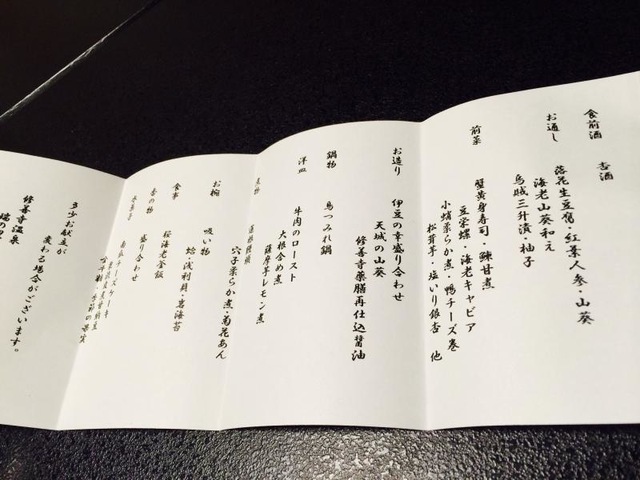 食前酒
杏酒
お通し
落花生豆腐・紅葉人参・山葵
海老山葵和え
烏賊三升漬・柚子
前菜
蟹黄身寿司・鰊甘煮
豆学蝶・海老キャビア
小蛸柔らか煮・鴨チーズ巻
松茸芋・塩いり銀杏 他
お造り
伊豆の幸盛り合わせ
天城の山葵
修善寺薬膳再仕込醤油
鍋物
鳥つみれ鍋
洋皿
牛肉のロースト
大根含め煮
薩摩芋レモン煮
煮物
お椀
穴子柔らか煮・菊花あん
吸い物
蛤浅利真丈・岩海苔
食事
桜海老釜飯
香の物
盛り合わせ
南瓜チーズケーキ
多少お献立が
変わる場合がございます。
修善寺温泉